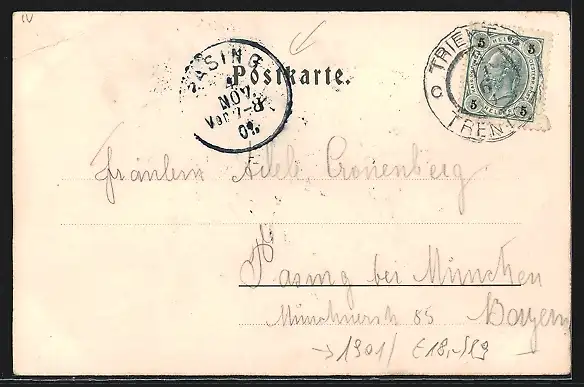 IV
PASING
NOV.
Vor. 7-8
01.
Postkarte.
TRIENT
TRENT
5 5
5 5
Fräulein Adele Cronenberg
Pasing bei München
Münchnerstr 85 Bayern
→ 1901/